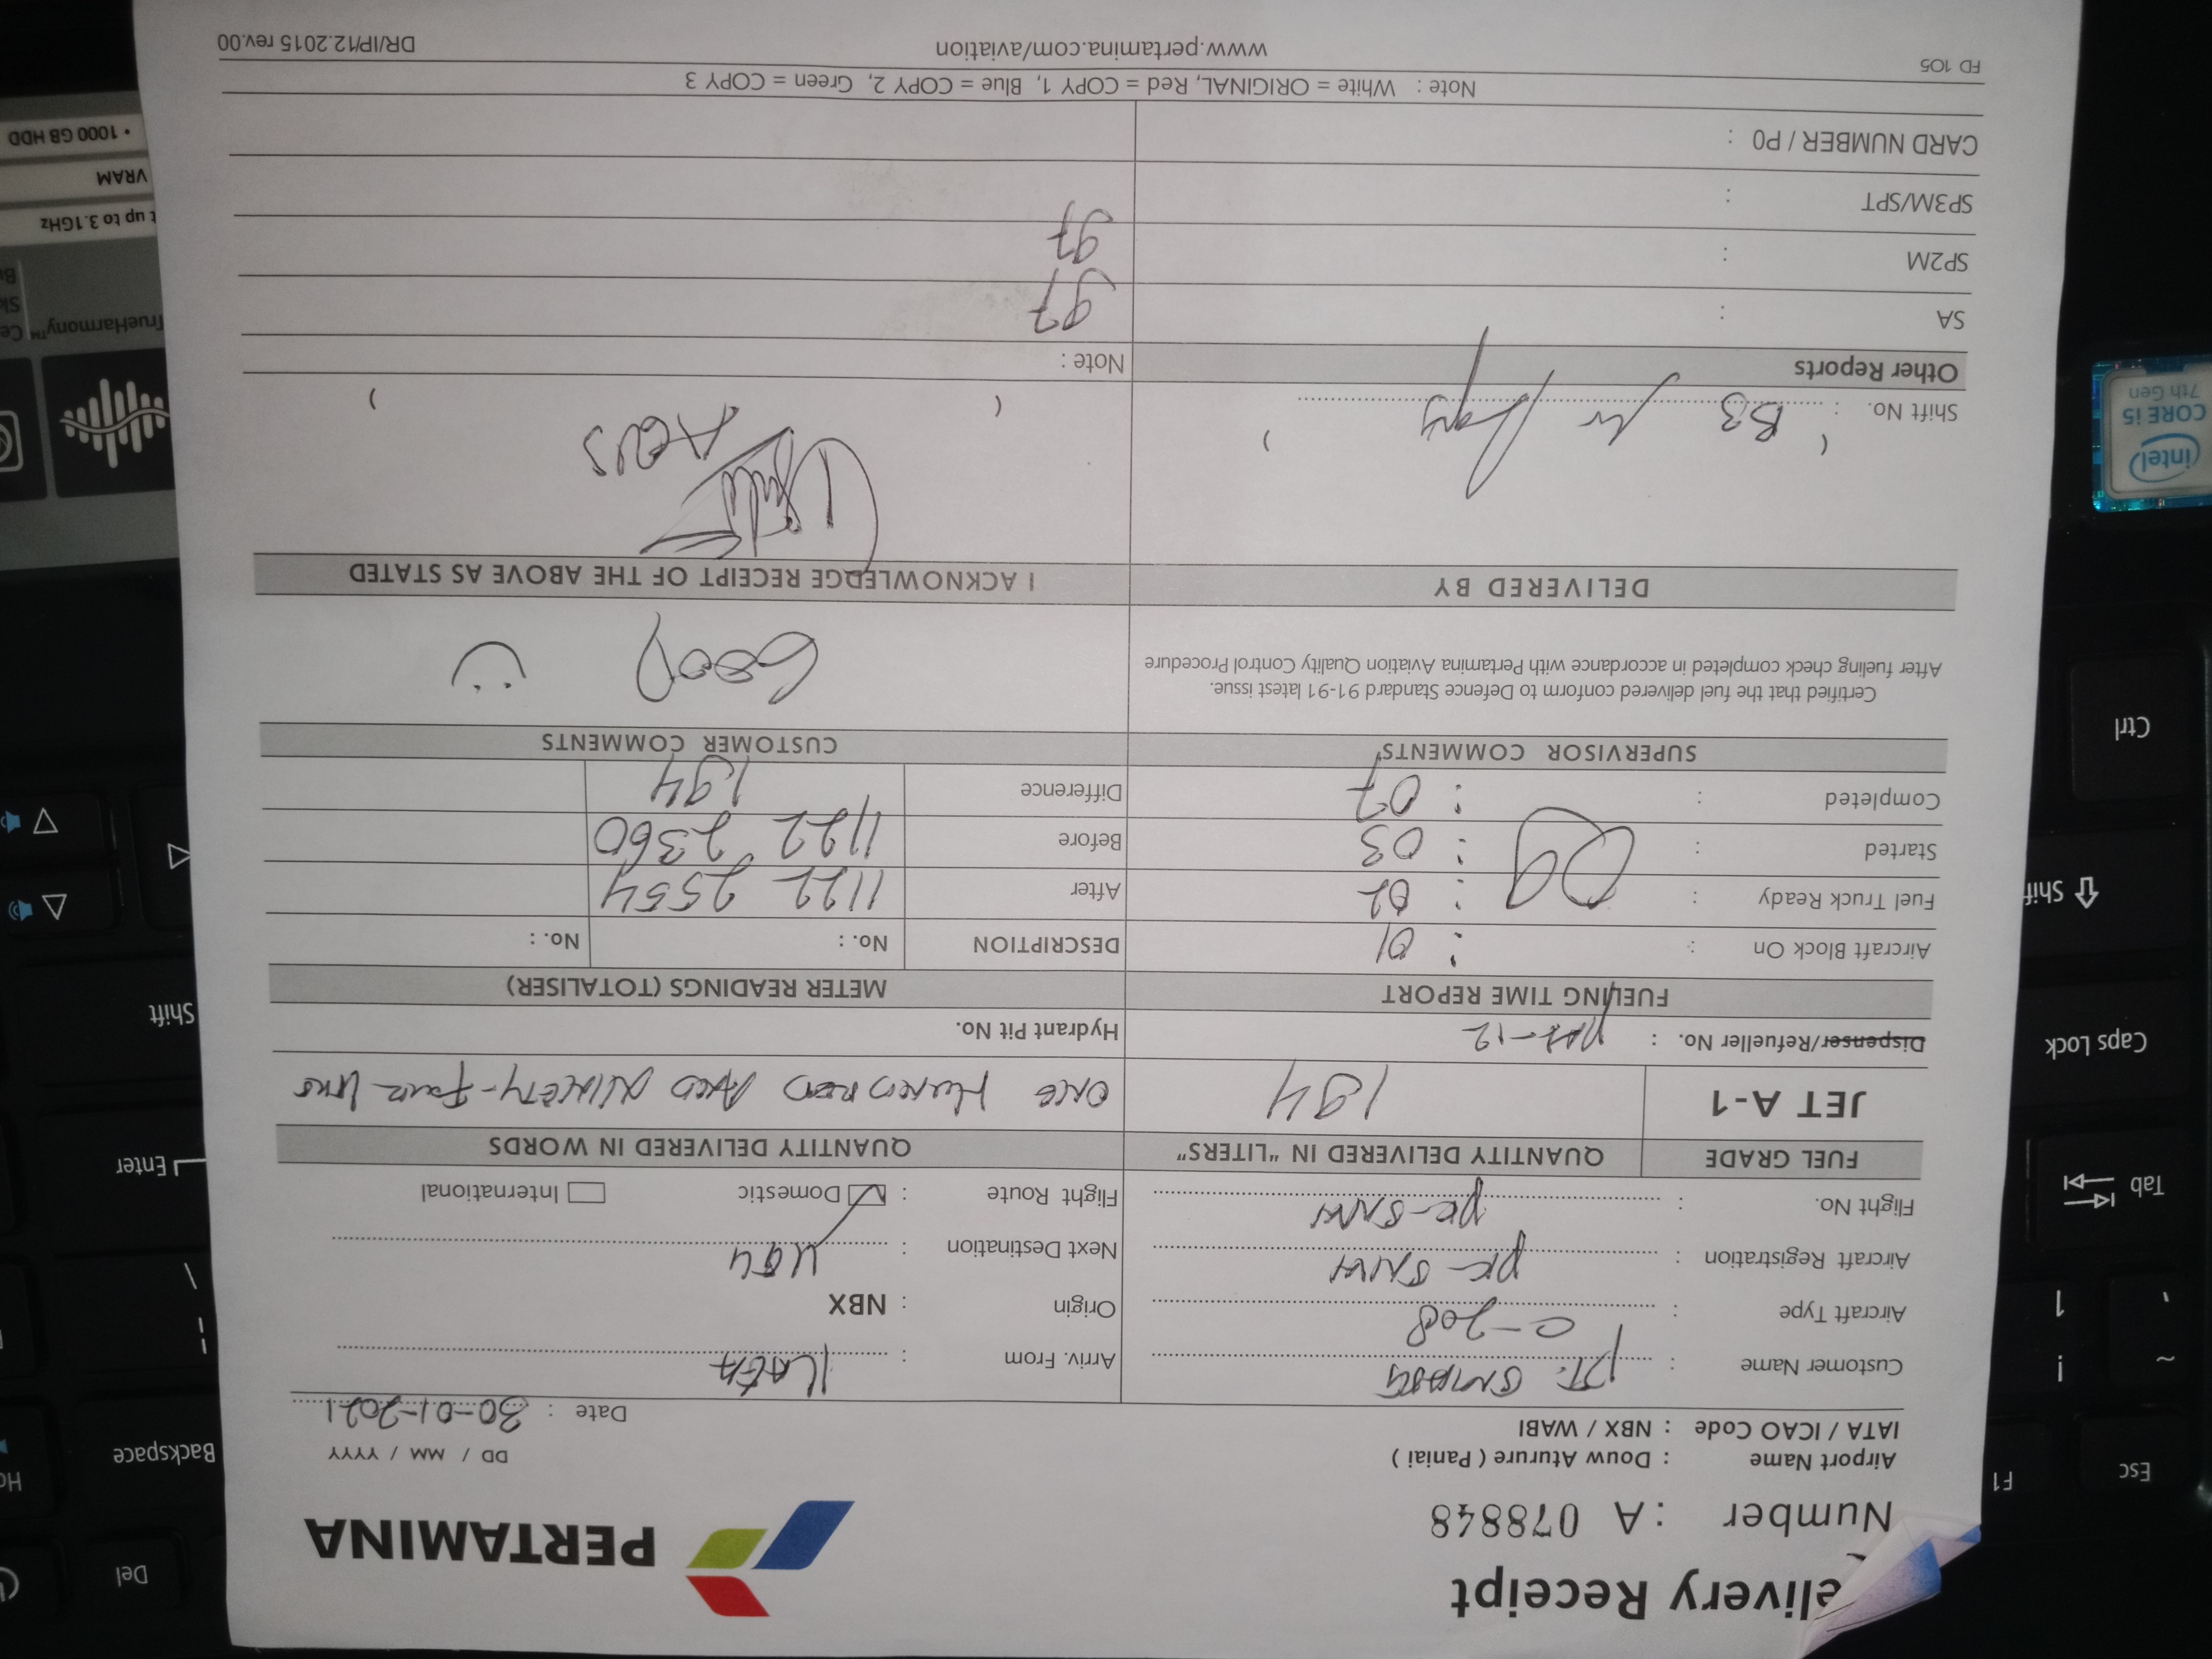 elivery Receipt
PERTAMINA
Number : A 078848
Airport Name : Douw Aturure ( Paniai )
DD / MM / YYYY
IATA / ICAO Code : NBX / WABI
Date : 30-01-2021
Customer Name : PT.
Arriv. From :
Aircraft Type : C-208
Origin : NBX
Aircraft Registration : PK-SNH
Next Destination :
Flight No. : PK-SNH
Flight Route : Domestic International
FUEL GRADE QUANTITY DELIVERED IN "LITERS" QUANTITY DELIVERED IN WORDS
JET A-1 194 ONE HUNDRED AND NINETY-FOUR
Dispenser/Refueller No. :
Hydrant Pit No.
FUELING TIME REPORT METER READINGS (TOTALISER)
Aircraft Block On : : 01
DESCRIPTION No. : No. :
Fuel Truck Ready : 09 : 02
After 1122 2554
Started : : 03
Before 1122 2360
Completed : : 07
Difference 194
SUPERVISOR COMMENTS CUSTOMER COMMENTS
Certified that the fuel delivered conform to Defence Standard 91-91 latest issue.
After fueling check completed in accordance with Pertamina Aviation Quality Control Procedure
GOOD :)
DELIVERED BY I ACKNOWLEDGE RECEIPT OF THE ABOVE AS STATED
AGUS
( ) ( )
Shift No. : B3
Other Reports Note :
SA : 97
SP2M : 97
SP3M/SPT :
CARD NUMBER / PO :
Note : White = ORIGINAL, Red = COPY 1, Blue = COPY 2, Green = COPY 3
FD 105 www.pertamina.com/aviation DR/IP/12.2015 rev.00
intel
CORE i5
7th Gen
Esc
F1
Tab
Caps Lock
Shift
Ctrl
Del
Backspace
Enter
Shift
TrueHarmony™
t up to 3.1GHz
VRAM
• 1000 GB HDD